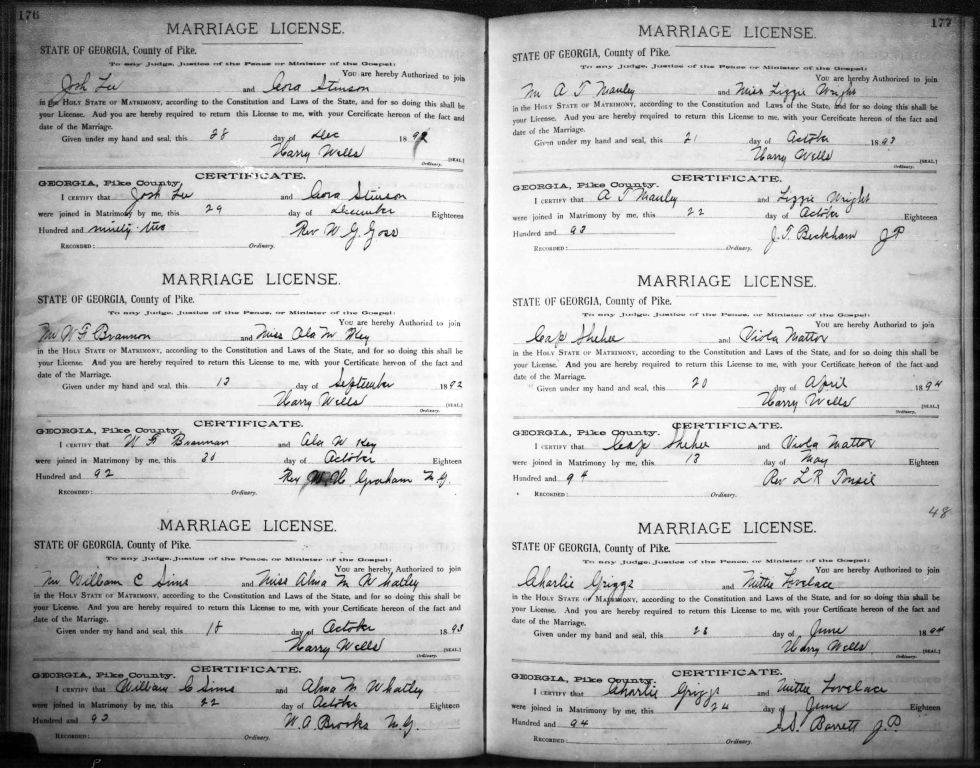 176
MARRIAGE LICENSE.
STATE OF GEORGIA, County of Pike.
To any Judge, Justice of the Peace, or Minister of the Gospel:
You are hereby Authorized to join
Josh Lee and Cora Stinson
in the HOLY STATE OF MATRIMONY, according to the Constitution and Laws of the State, and for so doing this shall be
your License. And you are hereby required to return this License to me, with your Certificate hereon of the fact and
date of the Marriage.
Given under my hand and seal, this 28 day of Dec 1892
Harry Wells [SEAL.]
Ordinary.
CERTIFICATE.
GEORGIA, Pike County.
I CERTIFY that Josh Lee and Cora Stinson
were joined in Matrimony by me, this 29 day of December Eighteen
Hundred and ninety-two Rev W. G. Goss
RECORDED: Ordinary.
MARRIAGE LICENSE.
STATE OF GEORGIA, County of Pike.
To any Judge, Justice of the Peace, or Minister of the Gospel:
You are hereby Authorized to join
Mr W F Brannon and Miss Ola M Key
in the HOLY STATE OF MATRIMONY, according to the Constitution and Laws of the State, and for so doing this shall be
your License. And you are hereby required to return this License to me, with your Certificate hereon of the fact and
date of the Marriage.
Given under my hand and seal, this 13 day of September 1892
Harry Wells [SEAL.]
Ordinary.
CERTIFICATE.
GEORGIA, Pike County.
I CERTIFY that W F Brannan and Ola M Key
were joined in Matrimony by me, this 30 day of October Eighteen
Hundred and 92 Rev Graham M.G.
RECORDED: Ordinary.
MARRIAGE LICENSE.
STATE OF GEORGIA, County of Pike.
To any Judge, Justice of the Peace, or Minister of the Gospel:
You are hereby Authorized to join
Mr William C Sims and Miss Alma M Whatley
in the HOLY STATE OF MATRIMONY, according to the Constitution and Laws of the State, and for so doing this shall be
your License. And you are hereby required to return this License to me, with your Certificate hereon of the fact and
date of the Marriage.
Given under my hand and seal, this 18 day of October 1893
Harry Wells [SEAL.]
Ordinary.
CERTIFICATE.
GEORGIA, Pike County.
I CERTIFY that William C Sims and Alma M Whatley
were joined in Matrimony by me, this 22 day of October Eighteen
Hundred and 93 W. A. Brooks M.G.
RECORDED: Ordinary.
177
MARRIAGE LICENSE.
STATE OF GEORGIA, County of Pike.
To any Judge, Justice of the Peace or Minister of the Gospel:
You are hereby Authorized to join
Mr A T Manley and Miss Lizzie Wright
in the HOLY STATE OF MATRIMONY, according to the Constitution and Laws of the State, and for so doing this shall be
your License. And you are hereby required to return this License to me, with your Certificate hereon of the fact and
date of the Marriage.
Given under my hand and seal, this 21 day of October 1893
Harry Wells [SEAL.]
Ordinary.
CERTIFICATE.
GEORGIA, Pike County.
I CERTIFY that A T Manley and Lizzie Wright
were joined in Matrimony by me, this 22 day of October Eighteen
Hundred and 93 J. T. Beckham JP
RECORDED: Ordinary.
MARRIAGE LICENSE.
STATE OF GEORGIA, County of Pike.
To any Judge, Justice of the Peace, or Minister of the Gospel:
You are hereby Authorized to join
Cap Shehee and Viola Mattox
in the HOLY STATE OF MATRIMONY, according to the Constitution and Laws of the State, and for so doing this shall be
your License. And you are hereby required to return this License to me, with your Certificate hereon of the fact and
date of the Marriage.
Given under my hand and seal, this 20 day of April 1894
Harry Wells [SEAL.]
Ordinary.
CERTIFICATE.
GEORGIA, Pike County.
I CERTIFY that Cap Shehee and Viola Mattox
were joined in Matrimony by me, this 13 day of May Eighteen
Hundred and 94 Rev L R
RECORDED: Ordinary.
48
MARRIAGE LICENSE.
STATE OF GEORGIA, County of Pike.
To any Judge, Justice of the Peace, or Minister of the Gospel:
You are hereby Authorized to join
Charlie Griggs and Mittie Lovelace
in the HOLY STATE OF MATRIMONY, according to the Constitution and Laws of the State, and for so doing this shall be
your License. And you are hereby required to return this License to me, with your Certificate hereon of the fact and
date of the Marriage.
Given under my hand and seal, this 23 day of June 1894
Harry Wells [SEAL.]
Ordinary.
CERTIFICATE.
GEORGIA, Pike County.
I CERTIFY that Charlie Griggs and Mittie Lovelace
were joined in Matrimony by me, this 24 day of June Eighteen
Hundred and 94 Barrett J.P.
RECORDED: Ordinary.